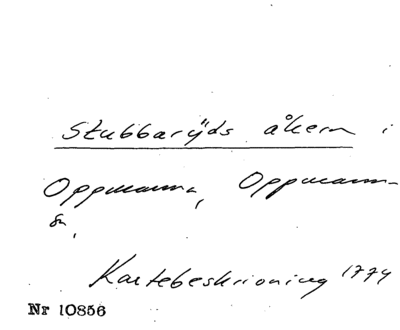 Stubbarÿds åkern i
Oppmanna, Oppmanna
sn,
Kartebeskrivning 1774
Nr 10856